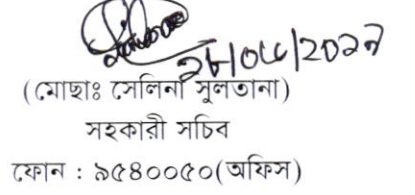 (মোছাঃ সেলিনা সুলতানা)
সহকারী সচিব
ফোন : ৯৫৪০০৫০(অফিস)